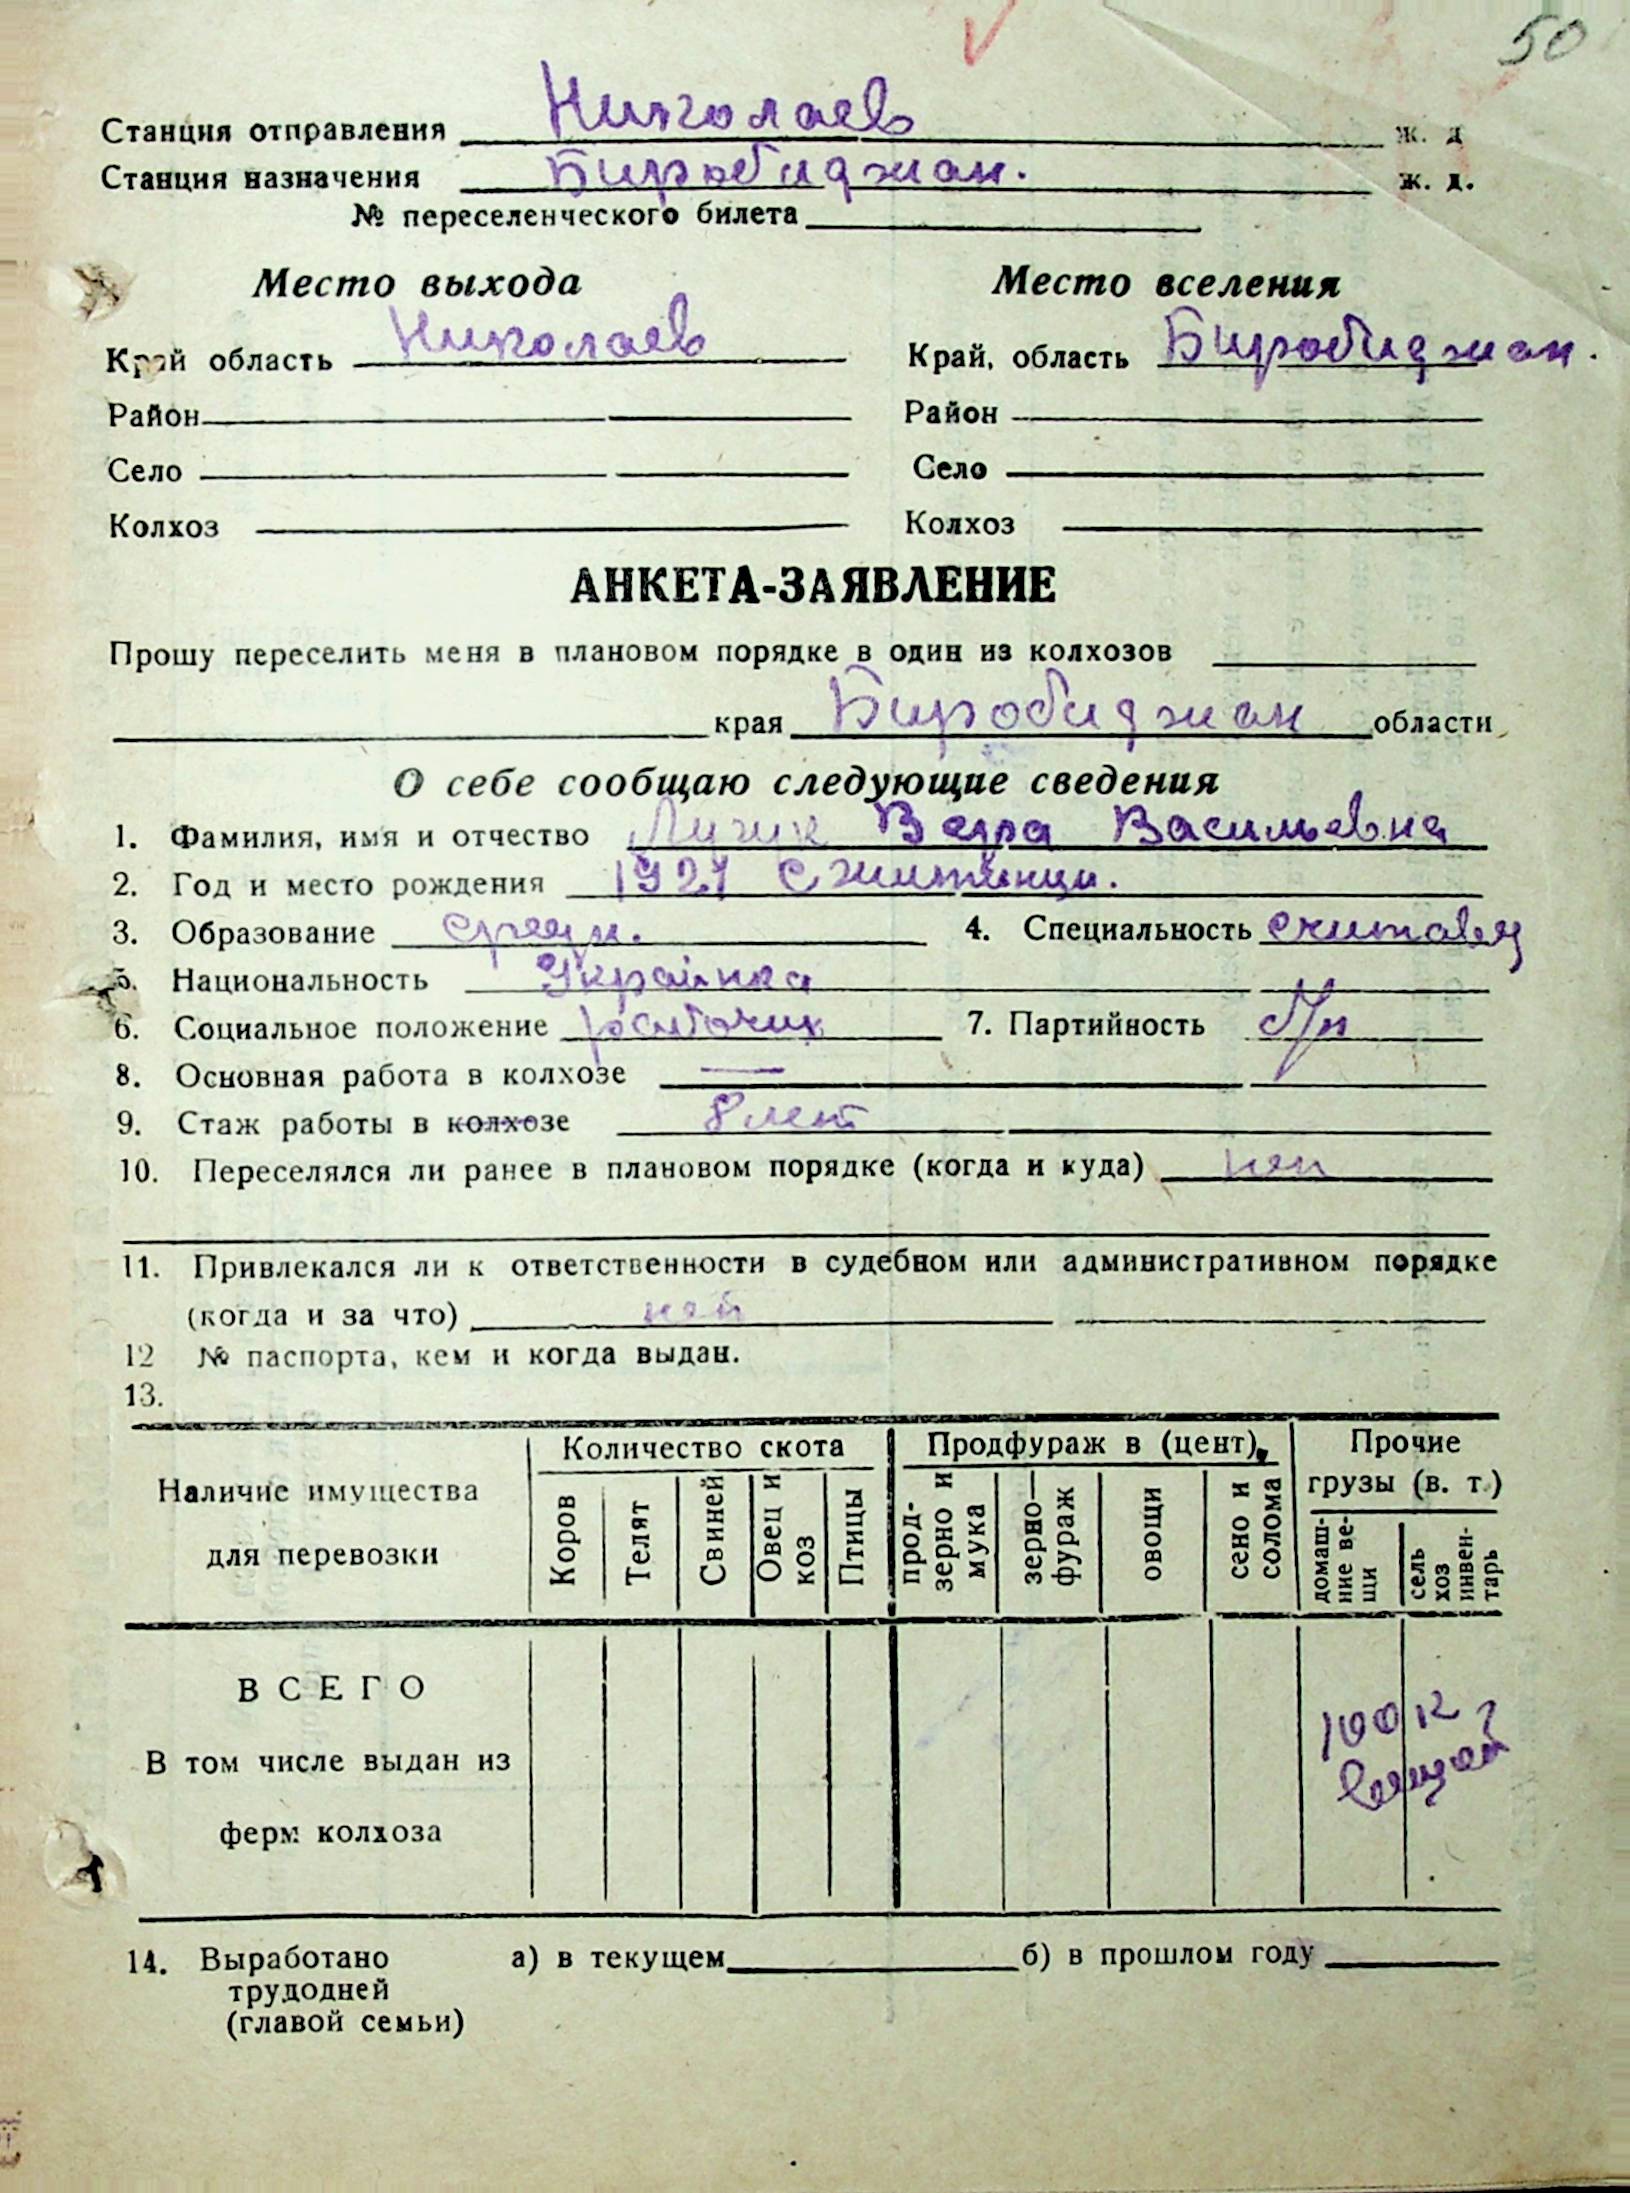 50
Станция отправления Николаев ж. д
Станция назначения Биробиджан. ж. д.
№ переселенческого билета
Место выхода Место вселения
Край область Николаев Край, область Биробиджан.
Район Район
Село Село
Колхоз Колхоз
АНКЕТА-ЗАЯВЛЕНИЕ
Прошу переселить меня в плановом порядке в один из колхозов
края Биробиджан области
О себе сообщаю следующие сведения
1. Фамилия, имя и отчество Вера Васильевна
2. Год и место рождения 1927 с
3. Образование средн. 4. Специальность счетовод
5. Национальность Украінка
6. Социальное положение 7. Партийность
8. Основная работа в колхозе —
9. Стаж работы в колхозе 8 лет
10. Переселялся ли ранее в плановом порядке (когда и куда) нет
11. Привлекался ли к ответственности в судебном или административном порядке
(когда и за что) нет
12 № паспорта, кем и когда выдан.
13.
Наличие имущества для перевозки
Количество скота Продфураж в (цент), Прочие грузы (в. т.)
Коров Телят Свиней Овец и коз Птицы прод-зерно и мука зерно—фураж овощи сено и солома домаш-ние ве-щи сель хоз инвен-тарь
ВСЕГО
100 к г
вещей
В том числе выдан из
ферм колхоза
14. Выработано а) в текущем б) в прошлом году
трудодней
(главой семьи)